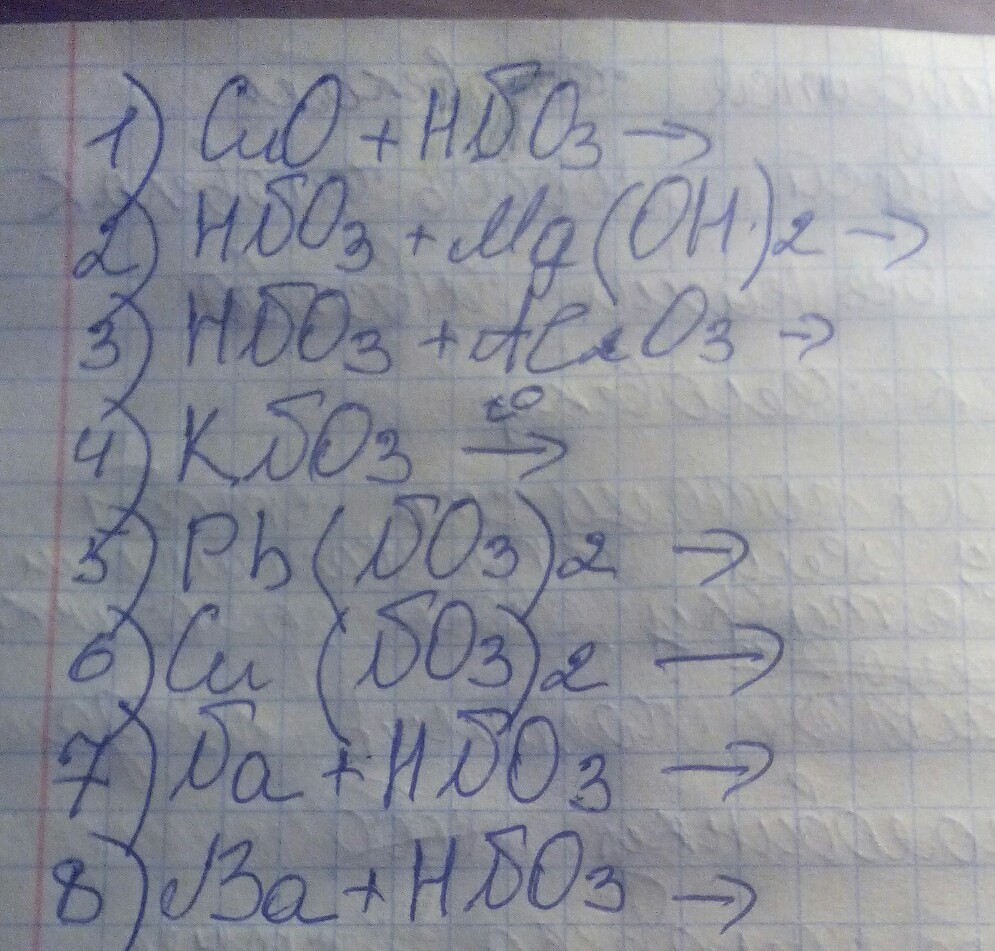 1) CuO + HNO3 →
2) HNO3 + Mg(OH)2 →
3) HNO3 + Al2O3 →
4) KNO3 t° →
5) Pb(NO3)2 →
6) Cu(NO3)2 →
7) Na + HNO3 →
8) Ba + HNO3 →